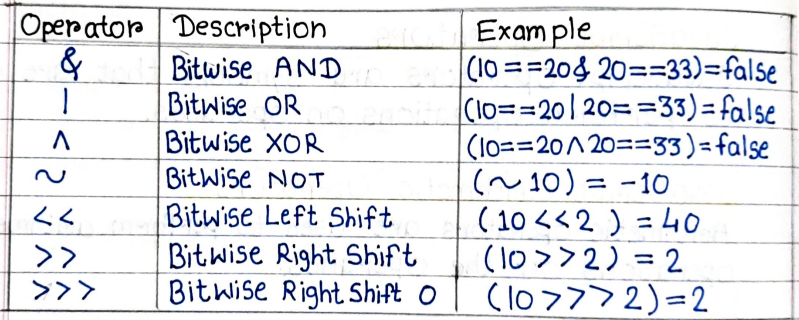 Operator Description Example
& Bitwise AND (10==20& 20==33)=false
| Bitwise OR (10==20|20==33)=false
^ Bitwise XOR (10==20^20==33)=false
~ Bitwise NOT (~10) = -10
<< Bitwise Left Shift (10<<2) = 40
>> Bitwise Right Shift (10>>2) = 2
>>> Bitwise Right Shift 0 (10>>>2)=2